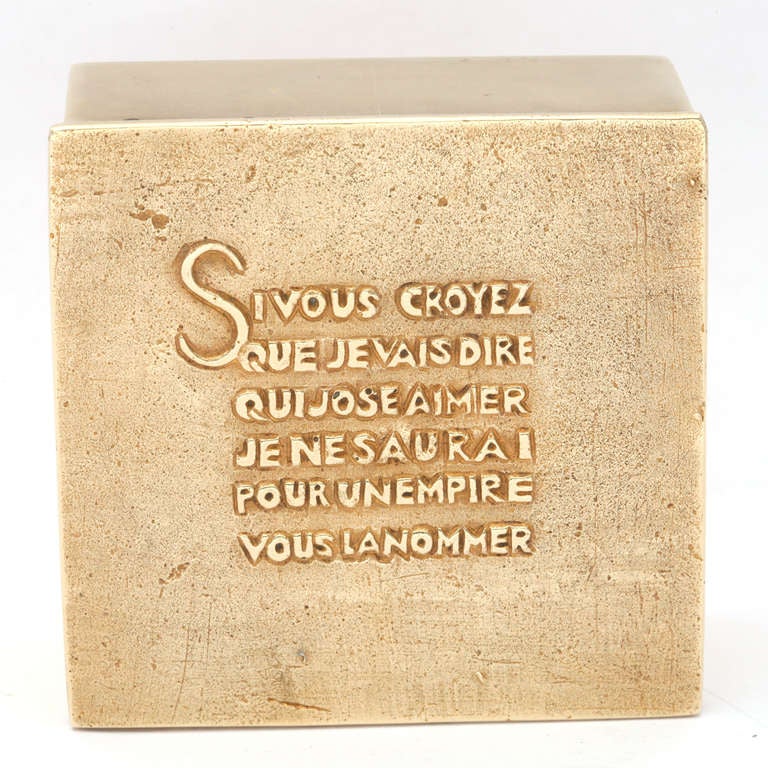 SI VOUS CROYEZ
QUE JE VAIS DIRE
QUI J'OSE AIMER
JE NE SAURAI
POUR UN EMPIRE
VOUS LA NOMMER